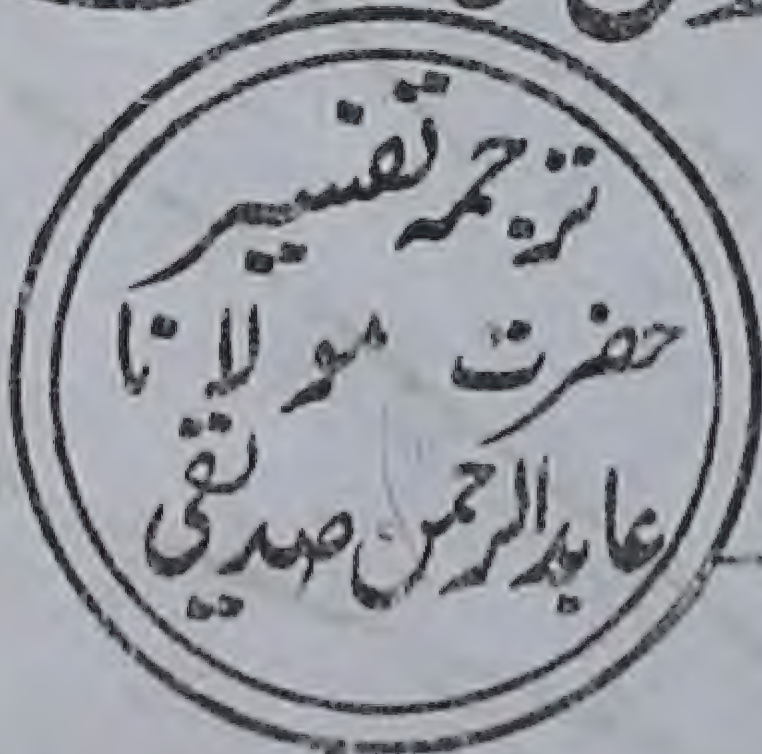 ترجمہ تفسیر
حضرت مولانا
عابدالرحمن صدیقی